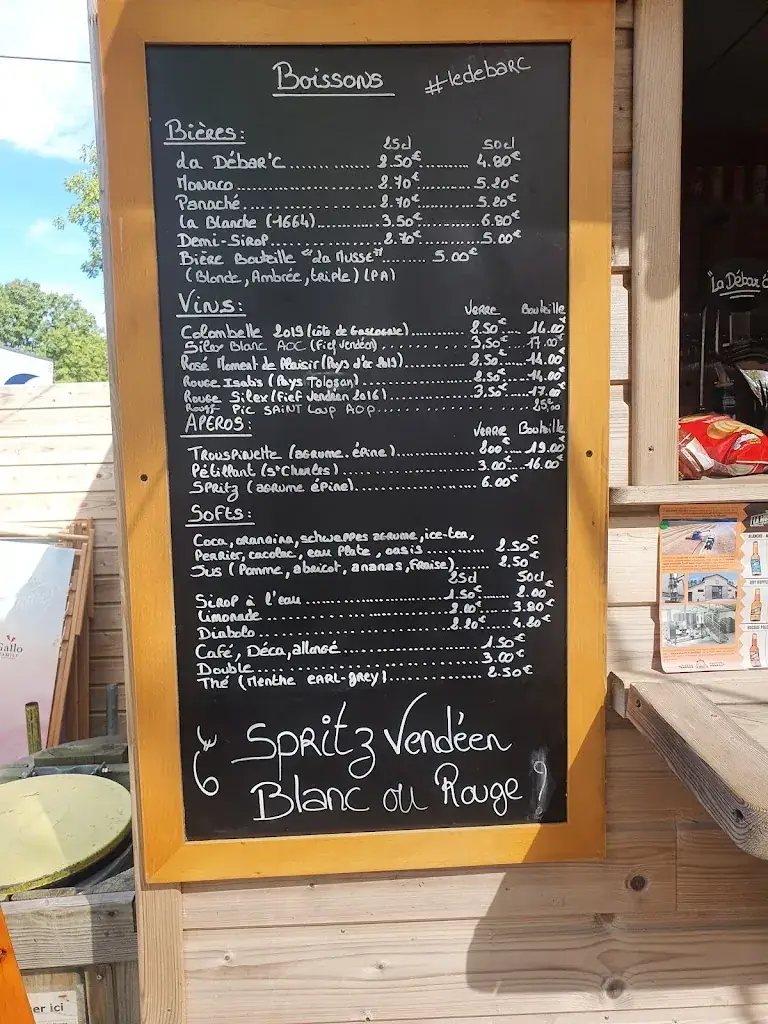 Boissons #ledebarc
Bières:
25cl 50cl
La Débar'c.................. 2.50€.......... 4.80€
Monaco.................... 2.70€.......... 5.20€
Panaché................... 2.70€.......... 5.20€
La Blanche (1664)............ 3.50€.......... 6.80€
Demi-Sirop................ 2.70€.......... 5.00€
Bière Bouteille "La Musse"....... 5.00€
(Blonde, Ambrée, triple) (PA)
Vins:
Verre Bouteille
Colombelle 2019 (Côte de Gascogne)............ 2.50€.... 14.00€
Silex Blanc AOC (Fief Vendéen)............ 3,50€... 17.00€
Rosé Moment de Plaisir (Pays d'oc 2019)........ 2.50€.... 14.00€
Rouge Isabs (Pays Tolosan)............ 2.50€.... 14.00€
Rouge Silex (Fief Vendéen 2016)............ 3,50€.... 17.00€
Rouge Pic SAINT Loup AOP............ 25,00
APÉROS:
Verre Bouteille
Trouspinette (agrume. épine)............ 3.00€.... 19.00€
Pétillant (St Charles)............ 3.00€.... 16.00€
Spritz (agrume épine)............ 6.00€
Softs:
Coca, orangina, schweppes agrume, ice-tea,
Perrier, cacolac, eau plate, oasis............ 2.50€
Jus (Pomme, abricot, ananas, fraise)............ 2,50€
25cl 50cl
Sirop à l'eau............ 1.50€........ 2.00€
Limonade............ 2.00€........ 3.80€
Diabolo............ 2.20€........ 4.20€
Café, Déca, allongé............ 1.50€
Double............ 3.00€
Thé (Menthe EARL-grey)............ 2.50€
6€ Spritz Vendéen
Blanc ou Rouge
"La Débar
Gallo
FAMILY
er ici